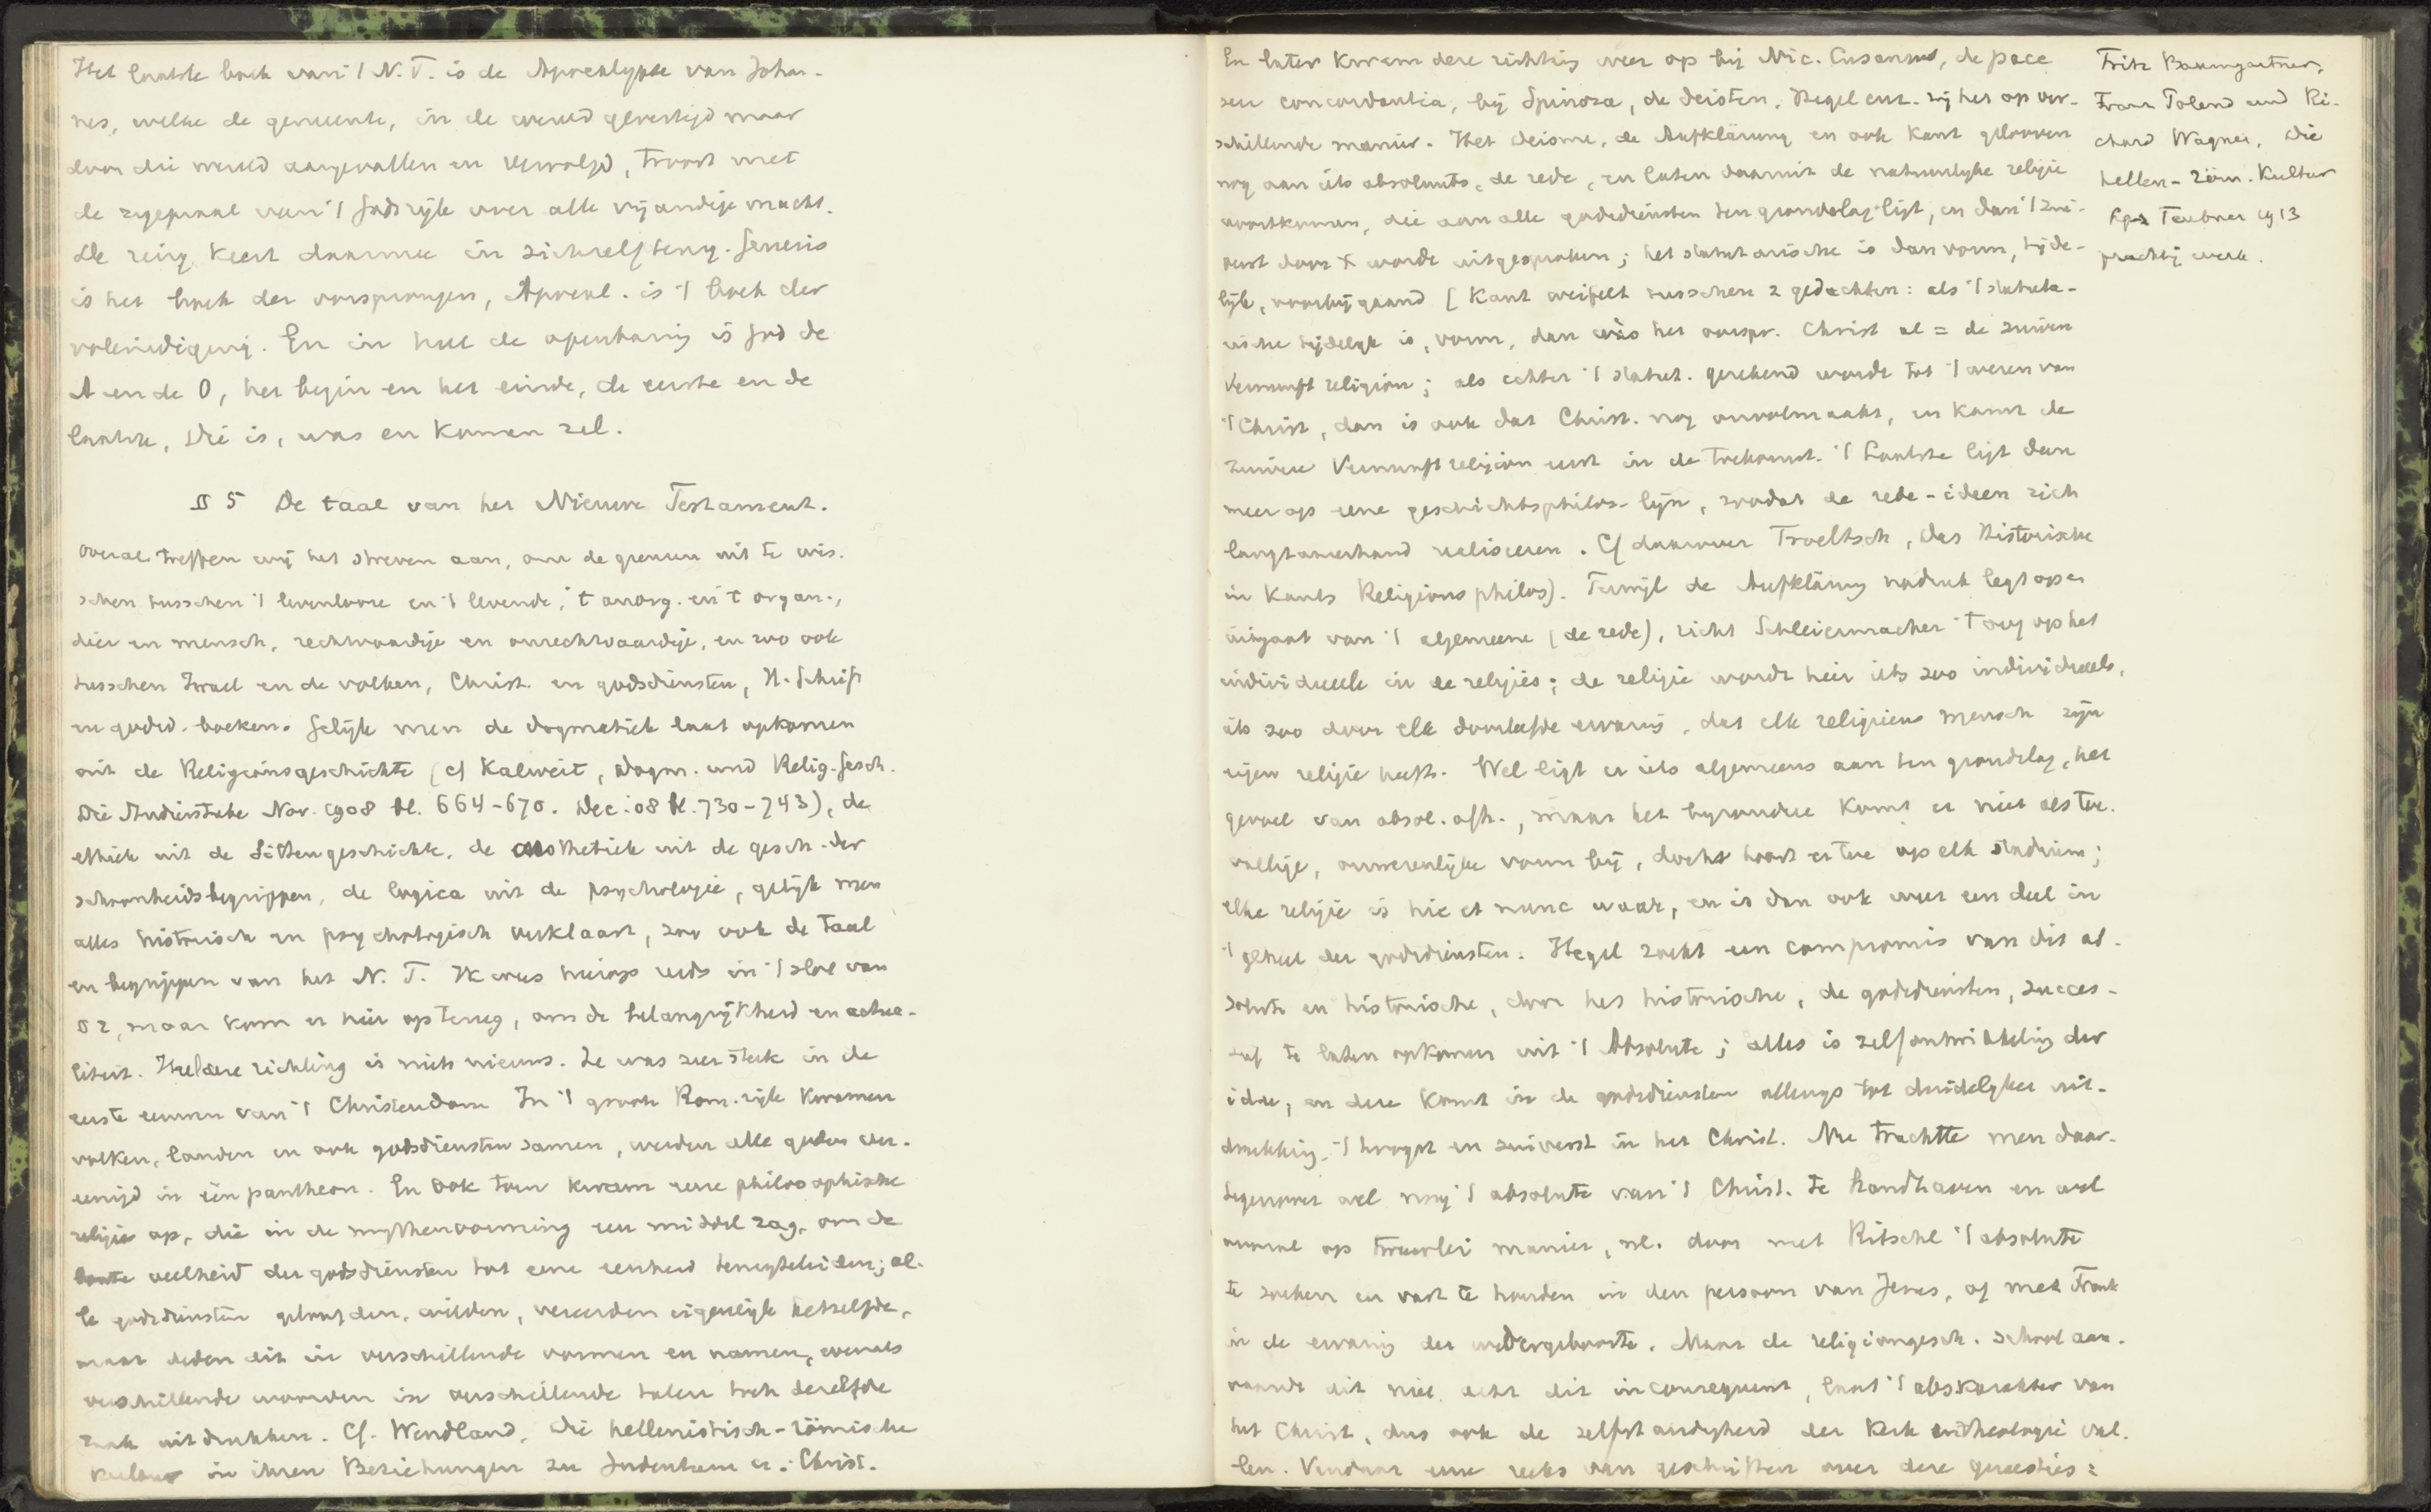 Het laatste boek van 't N.T. is de Apocalypse van Johan-
nes, welke de gemeente, in de wereld gevestigd maar
door die wereld aangevallen en vervolgd, troost met
de zegepraal van 't Godsrijk over alle vijandige macht.
De ring keert daarmee in zichzelf terug. Genesis
is het boek der oorsprongen, Apocal. is 't boek der
voleindiging. En in heel de openbaring is God de
A en de O, het begin en het einde, de eerste en de
laatste, Die is, was en komen zal.
§ 5 De taal van het Nieuwe Testament.
Overal treffen wij het streven aan, om de grenzen uit te wis-
schen tusschen 't levenlooze en 't levende, 't anorg. en 't organ.,
dier en mensch, rechtvaardige en onrechtvaardige, en zoo ook
tusschen Israel en de volken, Christ. en godsdiensten, H. Schrift
en godsd. boeken. Gelijk men de dogmatiek laat opkomen
uit de Religionsgeschichte (cf Kalweit, Dogm. und Relig. gesch.
Die Studierstube Nov. 1908 bl. 664-670. Dec. 08 bl. 730-743), de
ethiek uit de Sittengeschichte, de aesthetiek uit de gesch. der
schoonheidsbegrippen, de logica uit de psychologie, gelijk men
alles historisch en psychologisch verklaart, zoo ook de taal
en begrippen van het N.T. Ik wees hierop reeds in 't slot van
§ 2, maar kom er hier op terug, om de belangrijkheid en actua-
liteit. Heel deze richting is niets nieuws. Ze was zeer sterk in de
eerste eeuwen van 't Christendom In 't groote Rom. rijk kwamen
volken, landen en ook godsdiensten samen, werden alle goden ver-
eenigd in één pantheon. En ook toen kwam eene philosophische
religie op, die in de mythenvorming een middel zag, om de
bonte veelheid der godsdiensten tot eene eenheid terug te leiden; al-
le godsdiensten geloofden, wilden, vereerden eigenlijk hetzelfde,
maar deden dit in verschillende vormen en namen, evenals
verschillende woorden in verschillende talen toch dezelfde
zaak uitdrukken. Cf. Wendland, Die hellenistisch-römische
Kultur in ihren Beziehungen zu Judentum u. Christ.
En later kwam deze richting weer op bij Nic. Cusanus, de pace
seu concordantia, bij Spinoza, de deisten, Hegel enz. zij het op ver-
schillende manier. Het deisme, de Aufklärung en ook Kant gelooven
nog aan iets absoluuts, de rede, en laten daaruit de natuurlijke religie
voortkomen, die aan alle godsdiensten ten grondslag ligt, en dan 't zui-
verst door X wordt uitgesproken; het statutarische is dan vorm, tijde-
lijk, voorbijgaand [Kant weifelt tusschen 2 gedachten: als 't statuta-
rische tijdelijk is, vorm, dan was het oorspr. Christ al = de zuivere
Vernunftreligion; als echter 't statut. gerekend wordt tot 't wezen van
't Christ, dan is ook dat Christ. nog onvolmaakt, en komt de
zuivere Vernunftreligion eerst in de toekomst. 't Laatste ligt dan
meer op eene geschichtsphilos. lijn, zoodat de rede-ideen zich
langzamerhand realiseeren. Cf daarover Troeltsch, Das Historische
in Kants Religionsphilos). Terwijl de Aufklärung nadruk legt op en
uitgaat van 't algemeene (de rede), richt Schleiermacher 't oog op het
individueele in de religies; de religie wordt hier iets zoo individueels,
iets zoo door elk doorleefde ervaring, dat elk religieus mensch zijn
eigen religie heeft. Wel ligt er iets algemeens aan ten grondslag, het
gevoel van absol. afh., maar het bijzondere komt er niet als toe-
vallige, onwezenlijke vorm bij, doch hoort er toe op elk stadium;
elke religie is hic et nunc waar, en is dan ook weer een deel in
't geheel der godsdiensten. Hegel zoekt een compromis van dit ab-
solute en historische, door het historische, de godsdiensten, succes-
sief te laten opkomen uit 't Absolute; alles is zelfontwikkeling der
idee, en deze komt in de godsdiensten allengs tot duidelijker uit-
drukking, 't hoogst en zuiverst in het Christ. Nu trachtte men daar-
tegenover wel nog 't absolute van 't Christ. te handhaven en wel
vooral op tweeërlei manier, nl. door met Ritschl 't absolute
te zoeken en vast te houden in den persoon van Jezus, of met Frank
in de ervaring der wedergeboorte. Maar de religionsgesch. school aan-
vaardt dit niet, acht dit inconsequent, laat 't abs karakter van
het Christ, dus ook de zelfstandigheid der Kerk en theologie val-
len. Vandaar eene reeks van geschriften over deze quaesties:
Fritz Baumgartner,
Franz Poland und Ri-
chard Wagner, Die
hellen-röm. Kultur
Lpz Teubner 1913
prachtig werk.